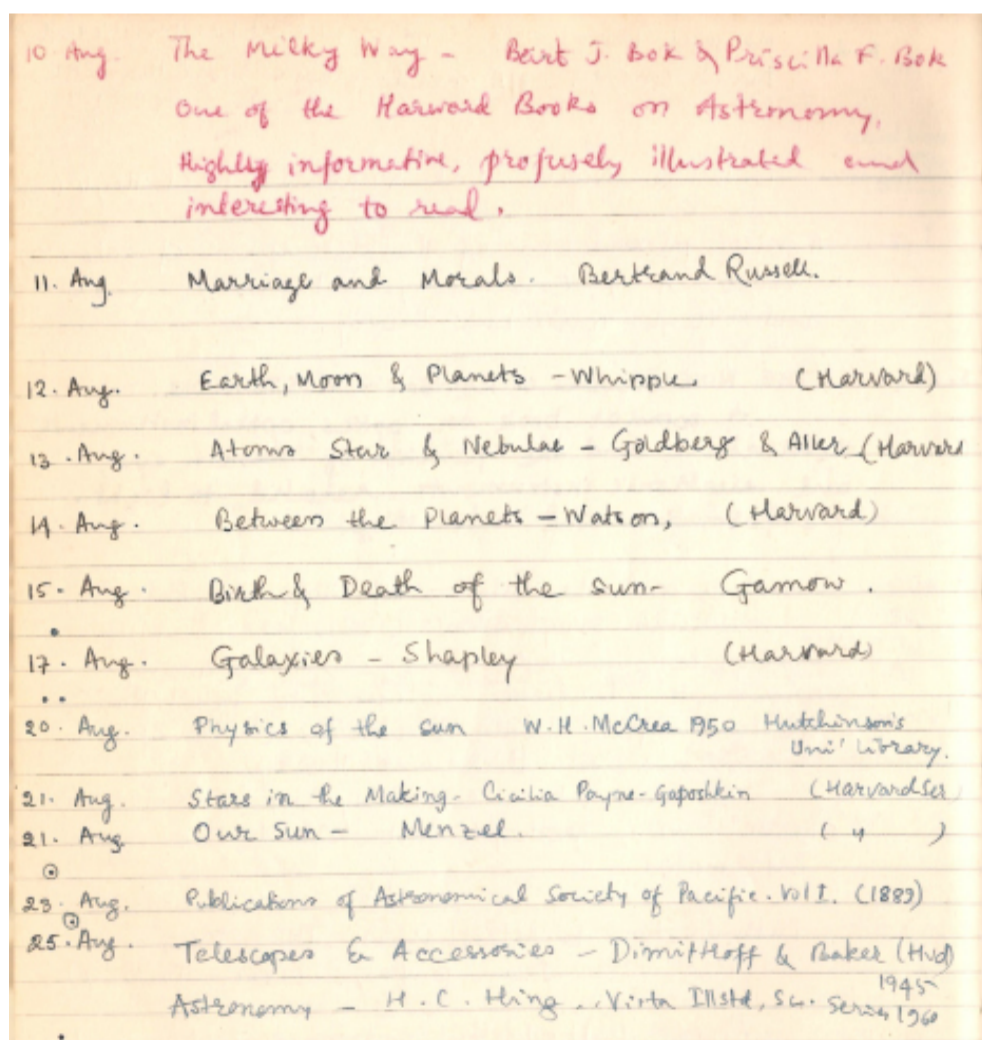 10 Aug. The Milky Way - Bart J. Bok & Priscilla F. Bok
One of the Harward Books on Astronomy,
Highly informative, profusely illustrated and
interesting to read.
11. Aug. Marriage and Morals. Bertrand Russell.
12. Aug. Earth, Moon & Planets - Whipple. (Harvard)
13. Aug. Atoms Star & Nebulae - Goldberg & Aller (Harvard
14. Aug. Between the Planets - Watson, (Harvard)
15. Aug. Birth & Death of the sun- Gamow.
17. Aug. Galaxies - Shapley (Harvard)
20. Aug. Physics of the sun W.H. McCrea 1950 Hutchinson's
Uni' Library.
21. Aug. Stars in the Making - Cicilia Payne-Gaposhkin (Harvard Ser
21. Aug. Our Sun - Menzel. ( " )
23. Aug. Publications of Astronomical Society of Pacific. Vol I. (1889)
25. Aug. Telescopes & Accessories - Dimitroff & Baker (Hvd)
1945
Astronomy - H.C. Illstd, Sc. Series 1960